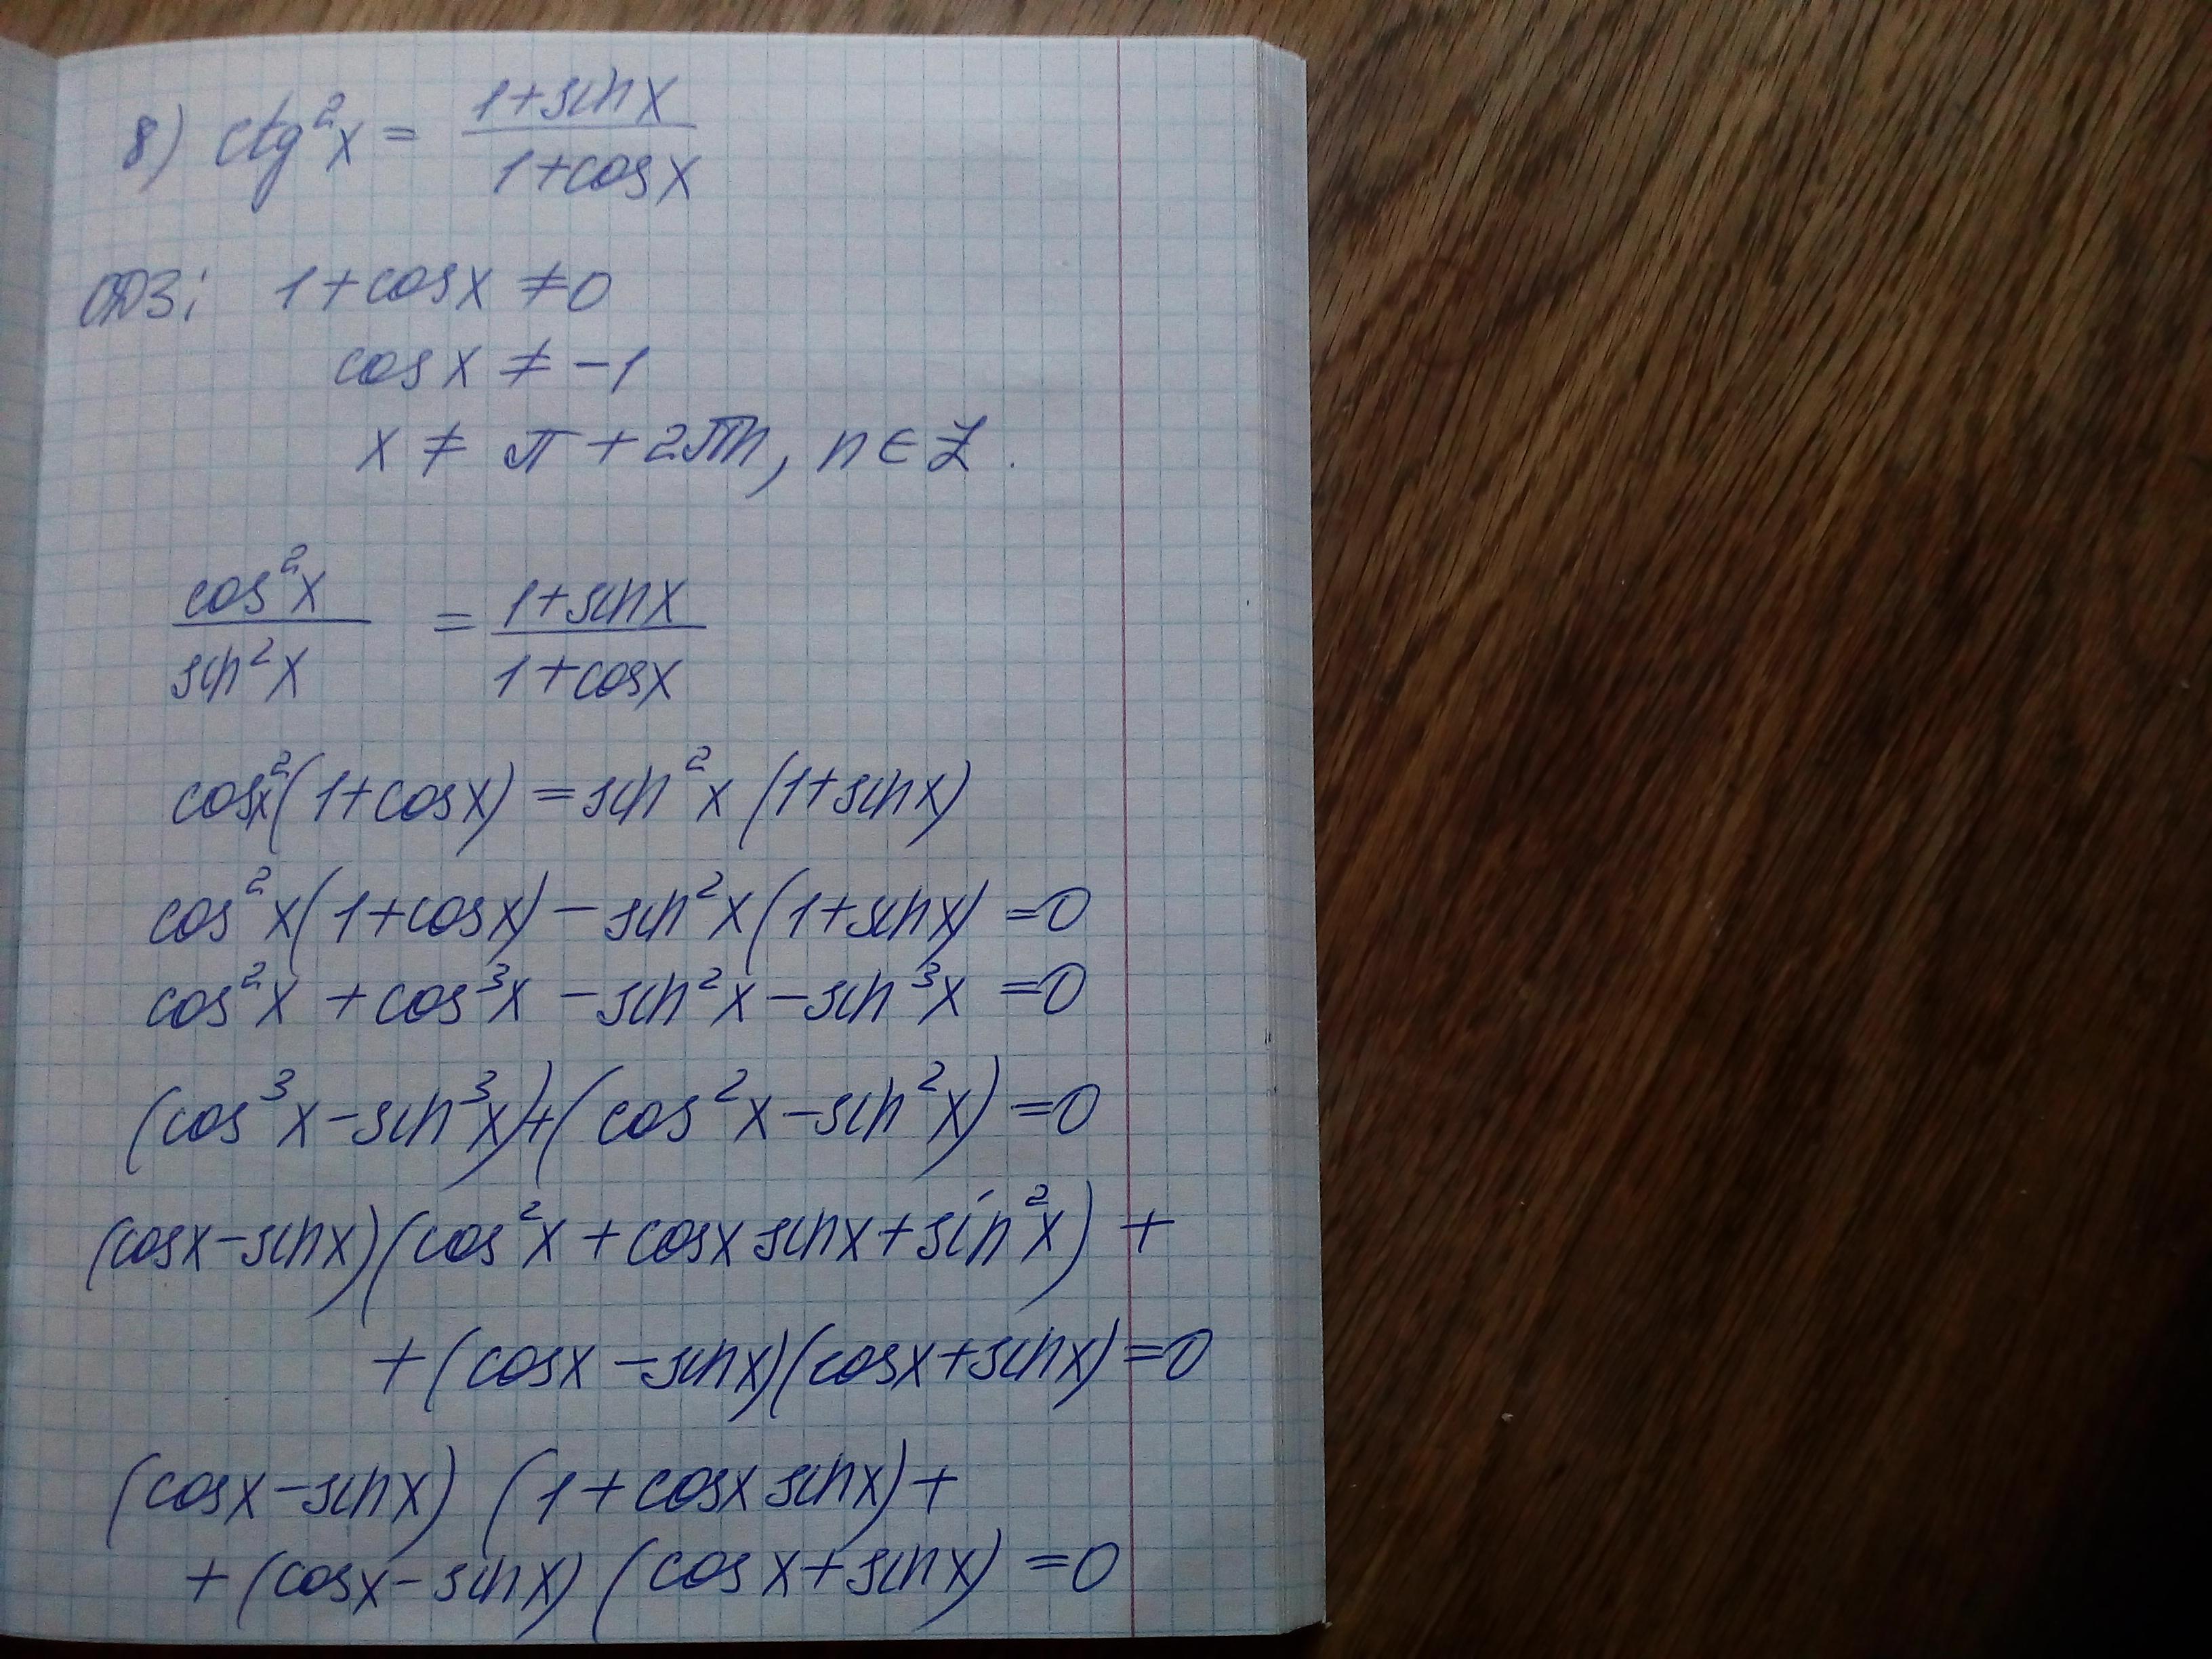 8) ctg²x = (1+sinx)/(1+cosx)
ОДЗ: 1+cosx ≠0
cosx ≠ -1
x ≠ π + 2πn, n∈Z.
cos²x/sin²x = (1+sinx)/(1+cosx)
cos²x(1+cosx) = sin²x (1+sinx)
cos²x(1+cosx) - sin²x(1+sinx) =0
cos²x + cos³x - sin²x - sin³x =0
(cos³x - sin³x)+(cos²x - sin²x) =0
(cosx - sinx)(cos²x + cosx sinx + sin²x) +
+ (cosx - sinx)(cosx+sinx)=0
(cosx - sinx) (1+cosx sinx) +
+ (cosx - sinx) (cosx+sinx) =0